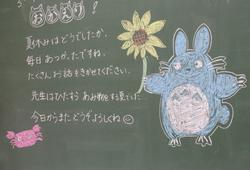 おかえり!
夏休みはどうでしたか。
毎日あつかったですね。
たくさんお話をきかせてください。
先生はひたすらあみ物をする夏でした。
今日からまたどうぞよろしくね